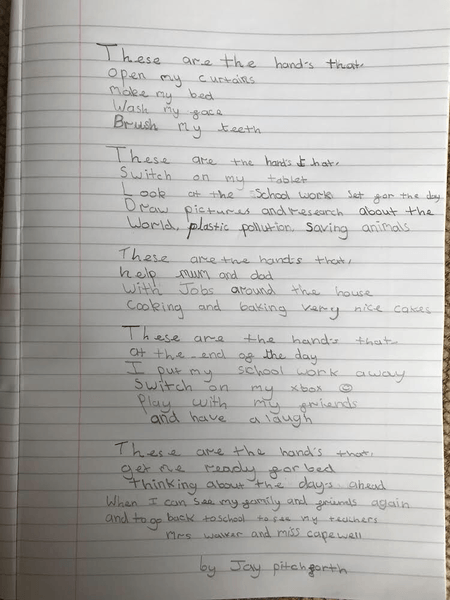 These are the hand's that,
open my curtains
make my bed
Wash my face
Brush my teeth
These are the hand's that,
Switch on my tablet
Look at the School work set for the day
Draw pictures and research about the
World, plastic pollution, Saving animals
These are the hand's that,
help mum and dad
With Jobs around the house
Cooking and baking very nice cakes
These are the hand's that
at the end of the day
I put my school work away
Switch on my xbox ☺
Play with my friends
and have a laugh
These are the hand's that,
get me ready for bed
thinking about the day's ahead
When I can see my family and friends again
and to go back to school to see my teachers
Mrs walker and miss capewell
by Jay pitchforth